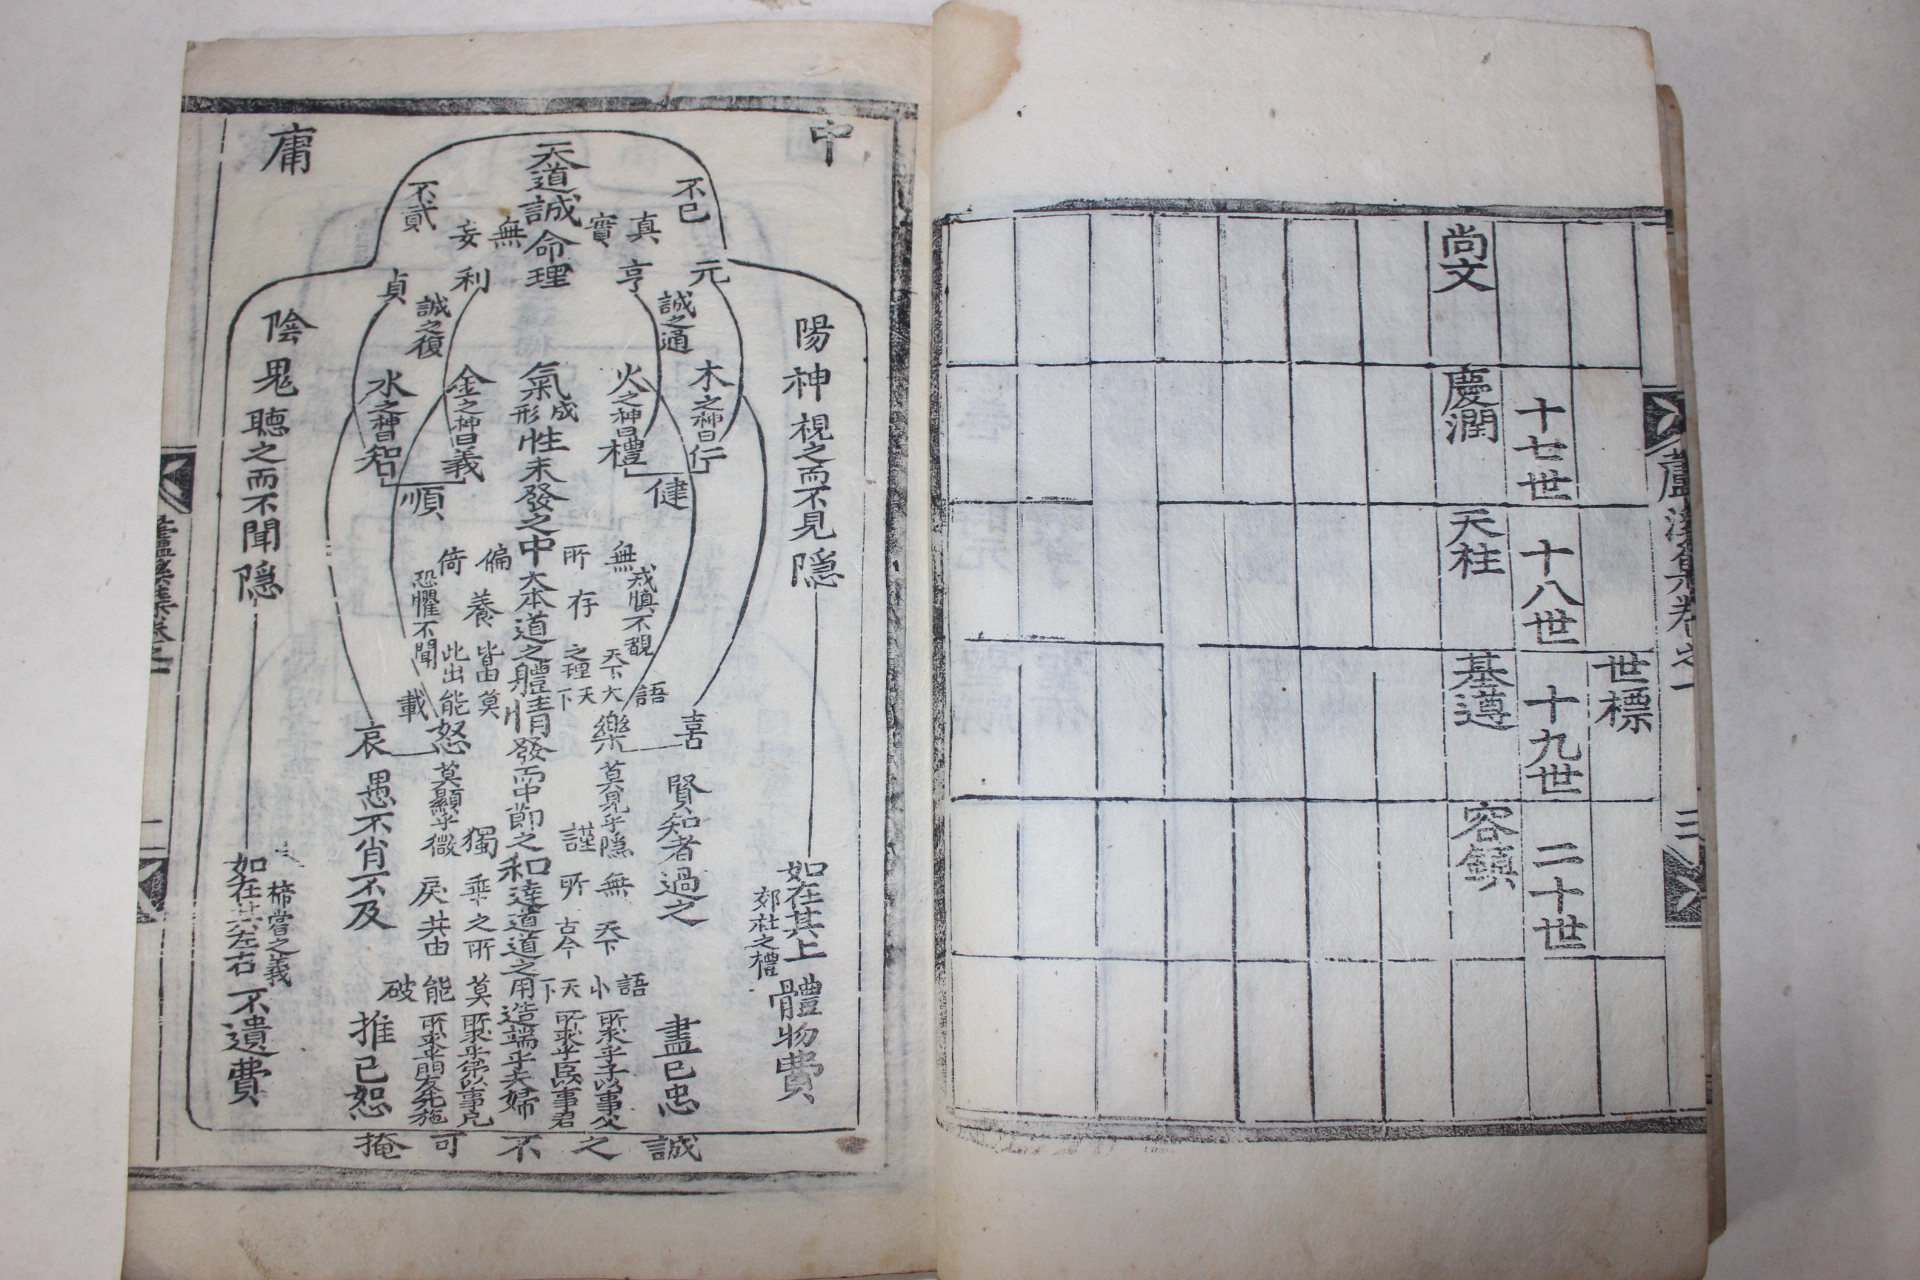 蘆溪集卷之一
三
世標
十七世
十八世
十九世
二十世
尚文
慶潤
天柱
基遵
容鎮
中
庸
天道誠命理
不已
不貳
真實
無妄
元
亨
利
貞
誠之通
誠之復
陽神視之而不見隱
如在其上體物費
郊社之禮
陰鬼聽之而不聞隱
如在其左右不遺費
禘嘗之義
木之神曰仁
火之神曰禮
金之神曰義
水之神曰智
健
順
氣成形性未發之中大本道之體情發而中節之和達道道之用造端乎夫婦
無所偏倚
戒慎不覩
恐懼不聞
存養
天下之理皆由此出
語大天下莫能載
喜
樂
怒
哀
莫見乎隱
莫顯乎微
謹獨
無所乖戾
天下古今之所共由
語小天下莫能破
賢知者過之
愚不肖不及
盡己忠
推己恕
所求乎子以事父
所求乎臣以事君
所求乎弟以事兄
所求乎朋友先施
誠之不可掩
蘆溪集卷之二
二